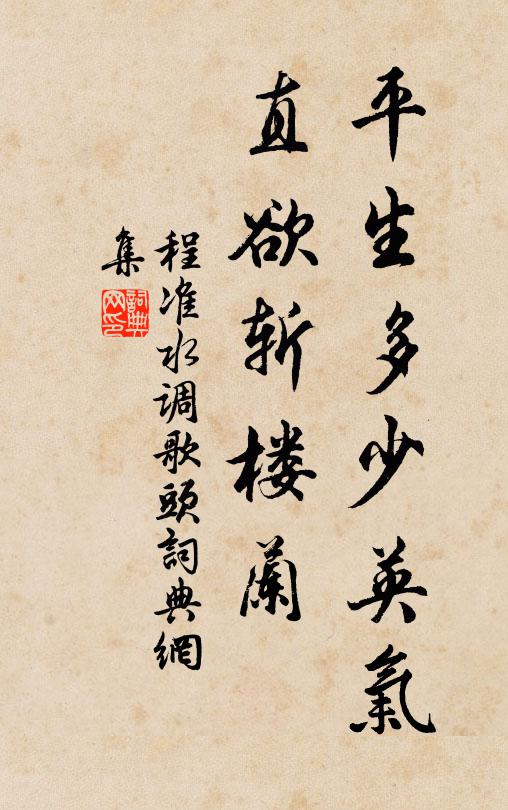 平生多少英氣
直欲斬楼蘭
程准水调歌頭詞典網
集
詞典网印